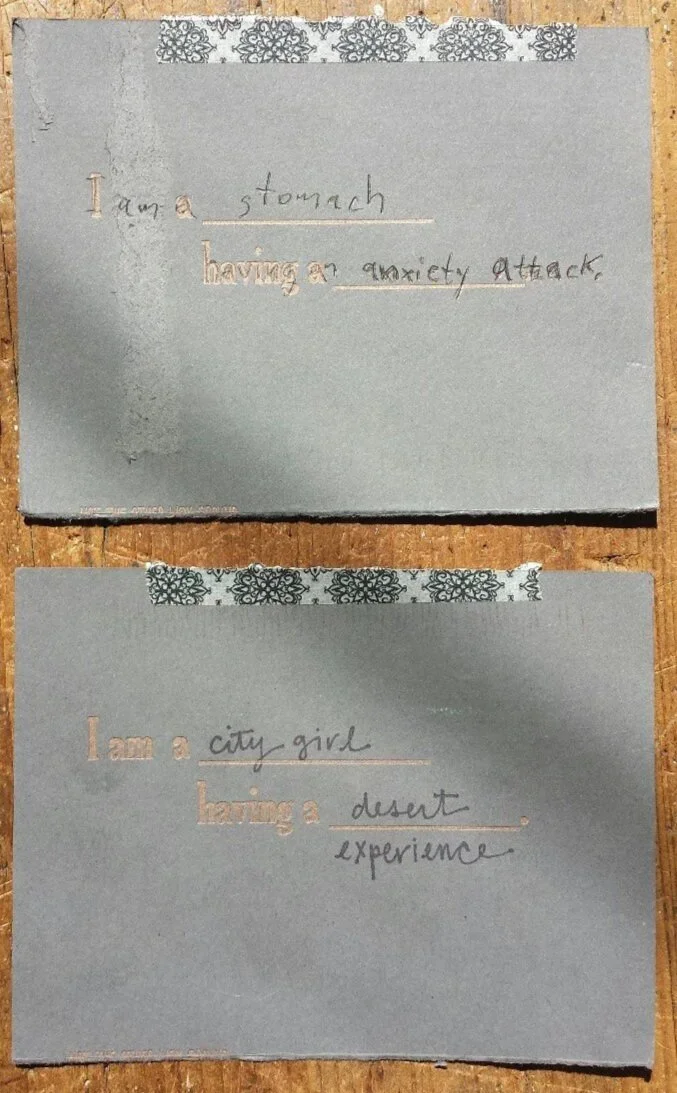 I am a stomach
having an anxiety attack.
I am a city girl
having a desert.
experience.